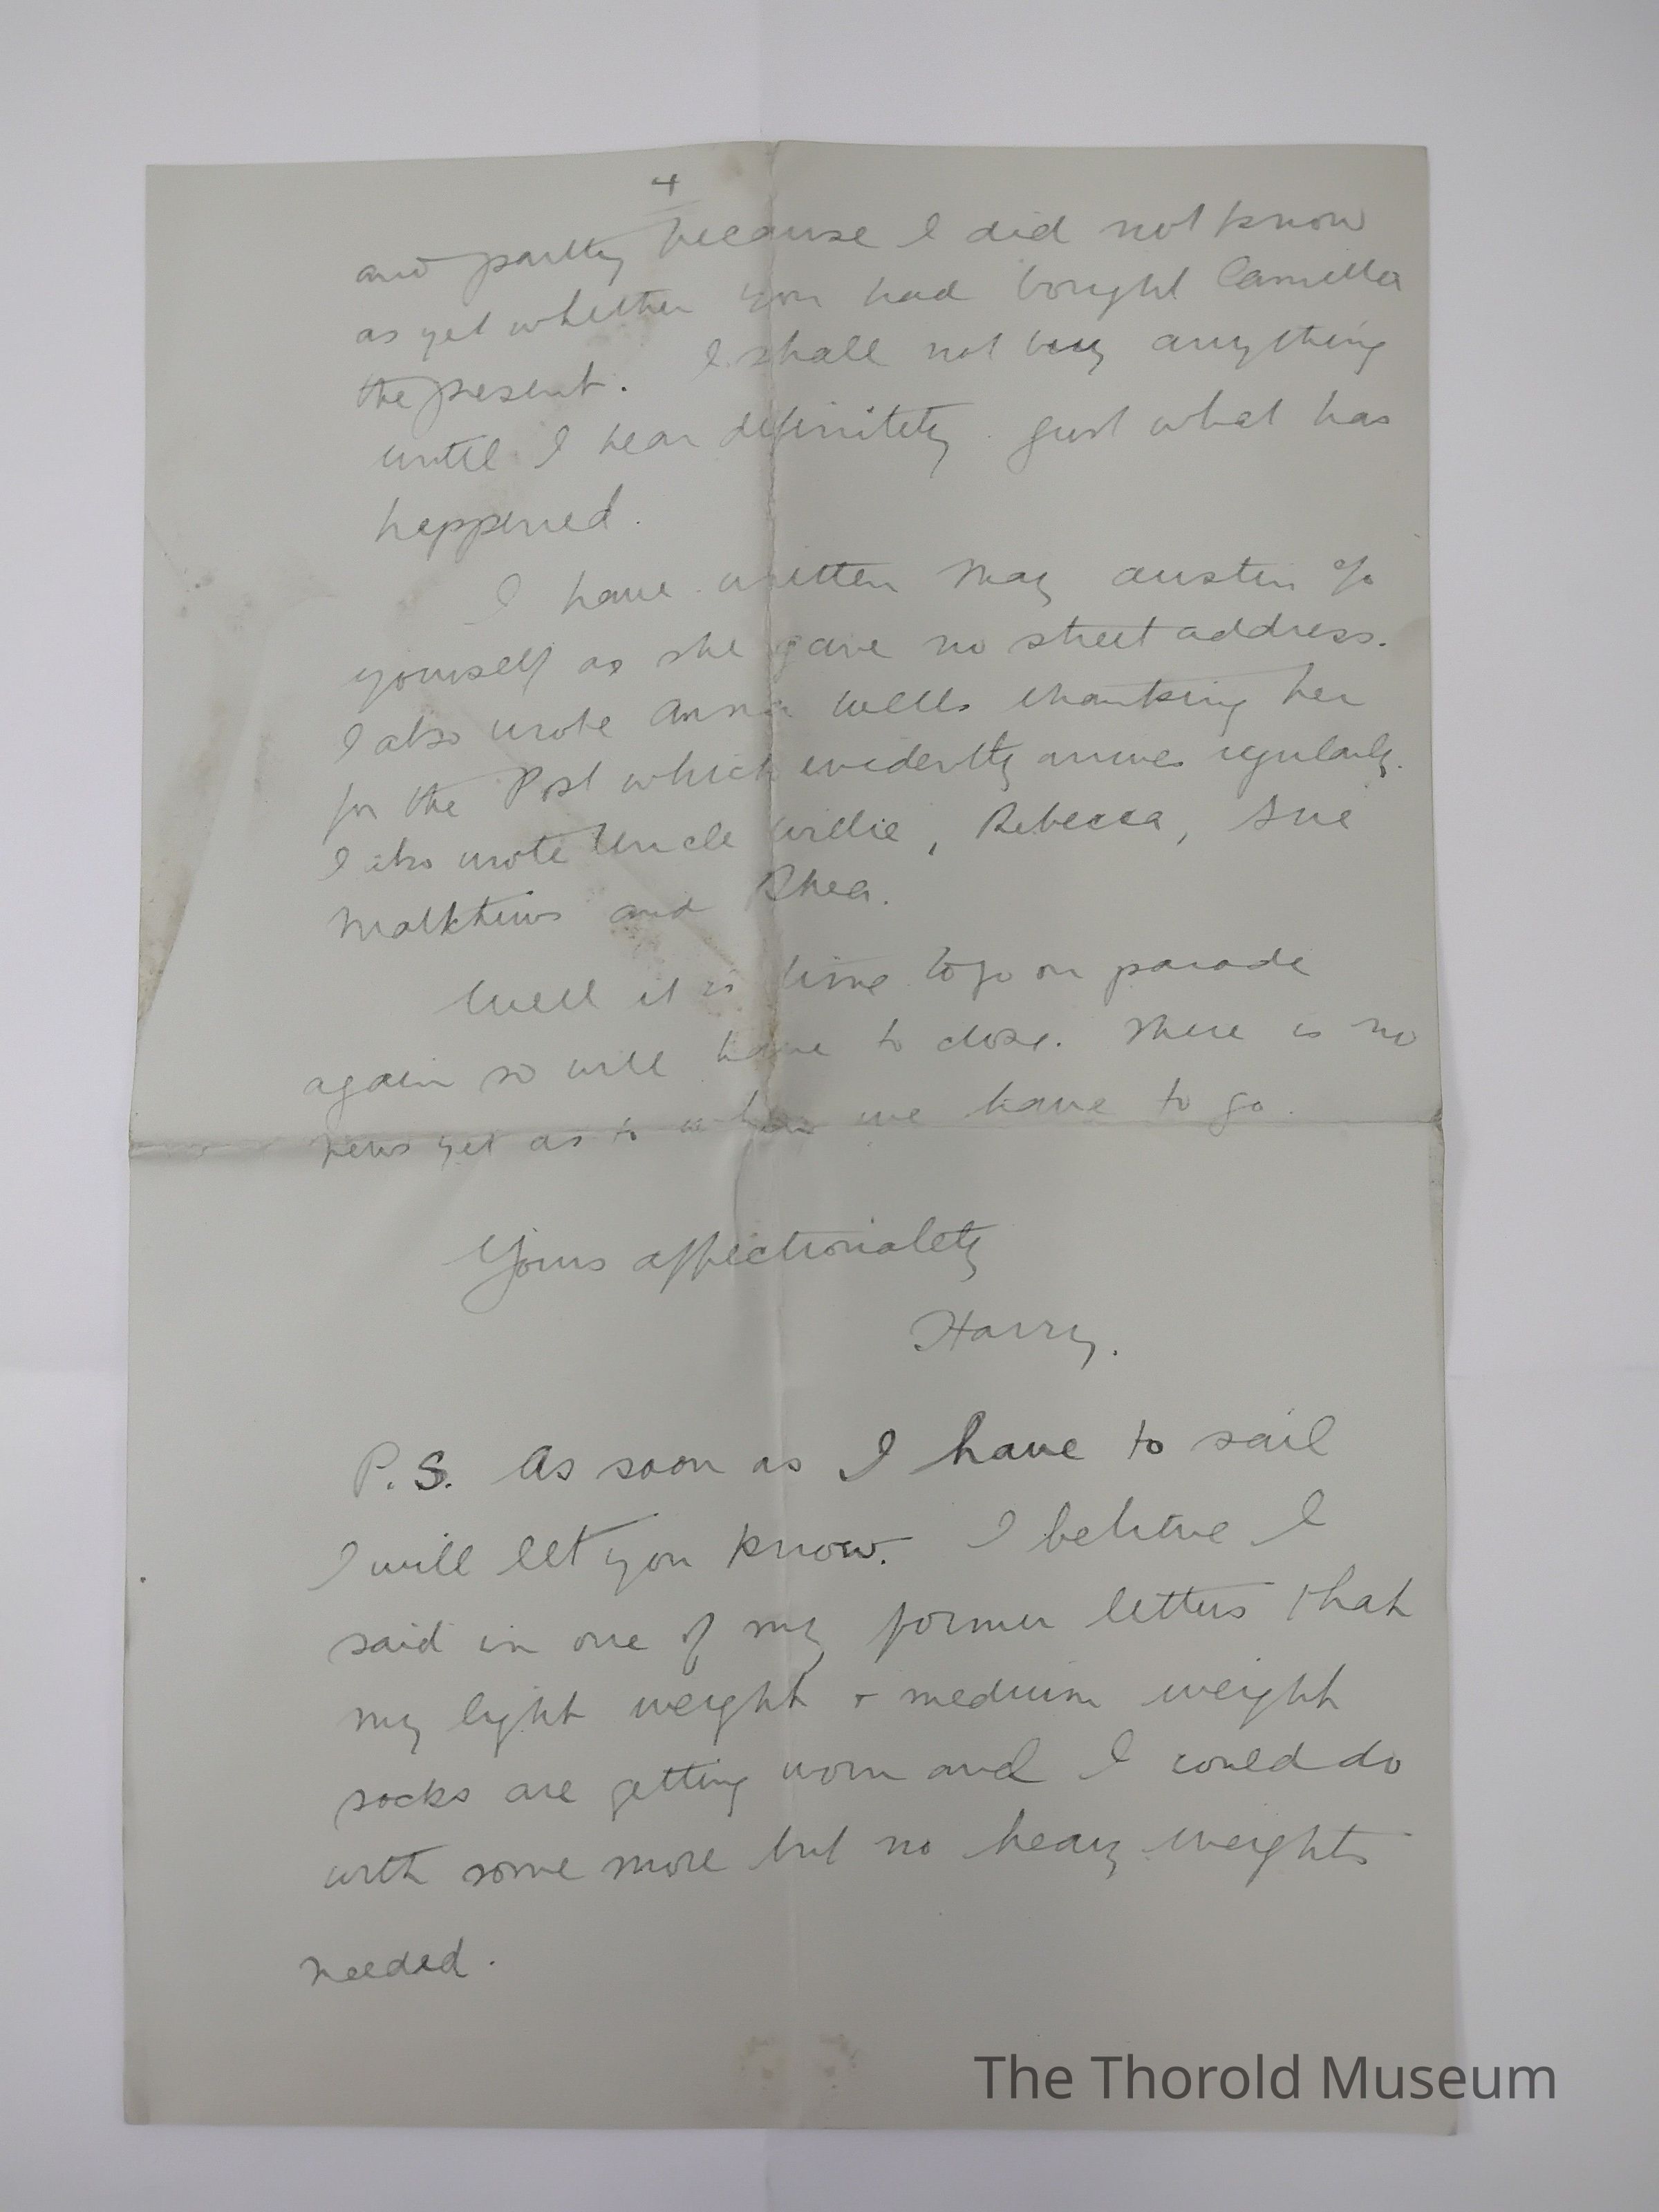 4
and partly because I did not know
as yet whether you had bought Camilla
the present. I shall not buy anything
until I hear definitely just what has
happened.
I have written May Austin c/o
yourself as she gave no street address.
I also wrote Anna Wells thanking her
for the Post which evidently arrives regularly.
I also wrote Uncle Willie, Rebecca, Sue
Matthews and Rhea.
Well it is time to go on parade
again so will have to close. There is no
news yet as to when we have to go.
Yours affectionately
Harry.
P.S. As soon as I have to sail
I will let you know. I believe I
said in one of my former letters that
my light weight + medium weight
socks are getting worn and I could do
with some more but no heavy weights
needed.
The Thorold Museum